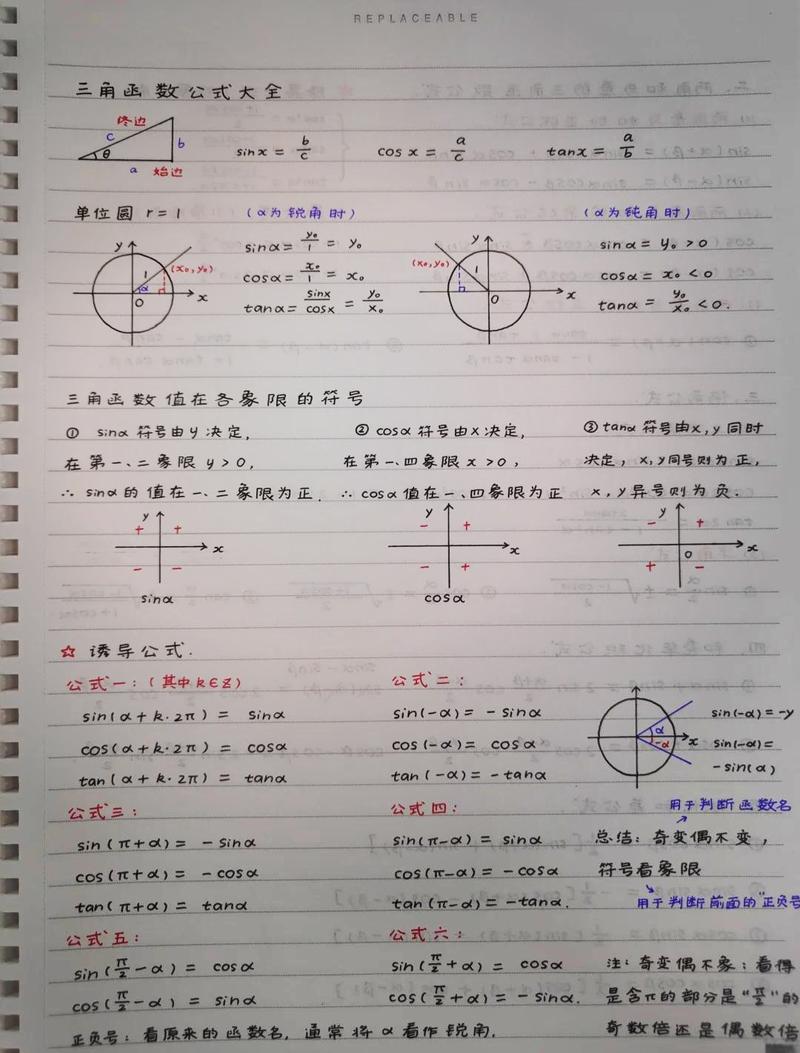 REPLACEABLE
三角函数公式大全
终边
c b
θ
a 始边
sinx = b/c cosx = a/c tanx = a/b
单位圆 r=1 (α为锐角时) (α为钝角时)
y (x₀,y₀) 1 α O x
sinα = y₀/1 = y₀
cosα = x₀/1 = x₀
tanα = sinx/cosx = y₀/x₀
y (x₀,y₀) 1 O x
sinα = y₀ > 0
cosα = x₀ < 0
tanα = y₀/x₀ < 0.
三角函数值在各象限的符号
① sinα 符号由 y 决定,
在第一、二象限 y>0,
∴ sinα 的值在一、二象限为正.
② cosα 符号由 x 决定,
在第一、四象限 x>0,
∴ cosα 值在一、四象限为正
③ tanα 符号由 x, y 同时
决定, x, y 同号则为正,
x, y 异号则为负.
y + + x - -
sinα
y - + x - +
cosα
y - + O x + -
☆ 诱导公式.
公式一:(其中 k∈Z)
sin(α+k·2π) = sinα
cos(α+k·2π) = cosα
tan(α+k·2π) = tanα
公式二:
sin(-α) = -sinα
cos(-α) = cosα
tan(-α) = -tanα
α -α x
sin(-α) = -y
sin(-α) =
-sin(α)
公式三:
sin(π+α) = -sinα
cos(π+α) = -cosα
tan(π+α) = tanα
公式四:
sin(π-α) = sinα
cos(π-α) = -cosα
tan(π-α) = -tanα.
用于判断函数名
总结: 奇变偶不变,
符号看象限
用于判断前面的"正负号
公式五:
sin(π/2-α) = cosα
cos(π/2-α) = sinα
公式六:
sin(π/2+α) = cosα
cos(π/2+α) = -sinα.
注: 奇变偶不象: 看得
是含π的部分是"π/2"的
奇数倍还是偶数倍
正负号: 看原来的函数名, 通常将 α 看作锐角.